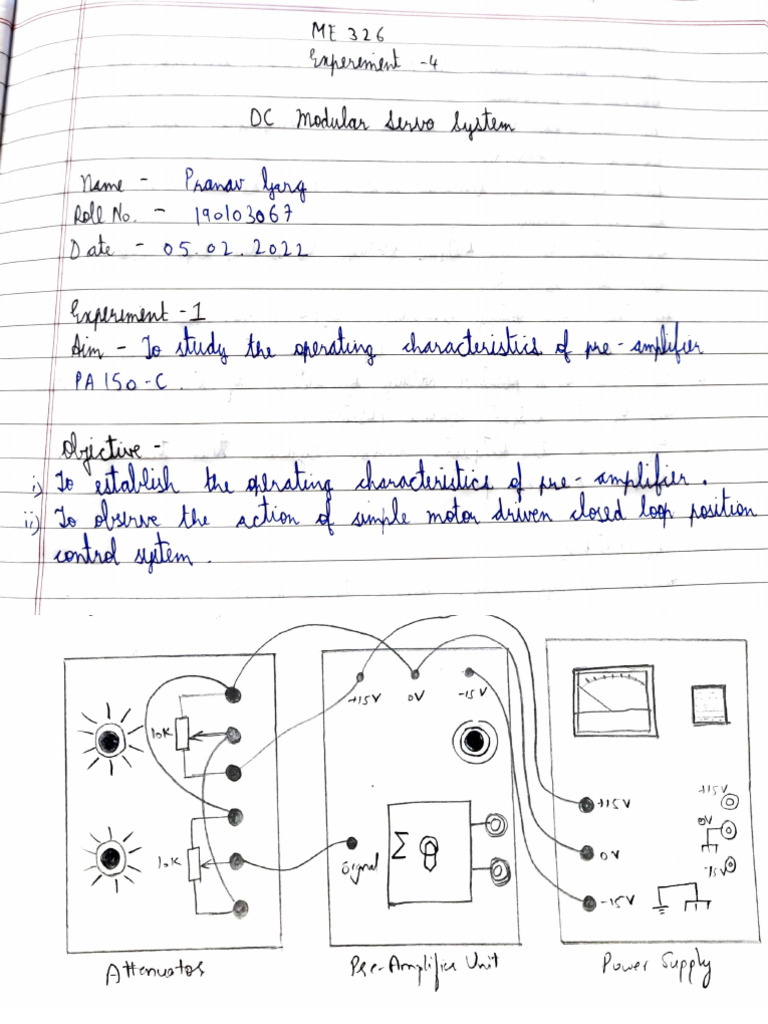 ME 326
Experement -4
DC Modular Servo System
Name - Pranav Garg
Roll No. - 190103067
Date - 05.02.2022
Experiment -1
Aim - To study the operating characteristiis of pre-amplifier
PA150-C.
Objective -
i) To establish the operating characteristics of pre-amplifier.
ii) To observe the action of simple motor driven closed loop position
control system.
+15V 0V -15V
10K
+15V
+15V
0V
10K
Signal
Σ
0V
-15V
-15V
Attenuator Pre-Amplifier Unit Power Supply